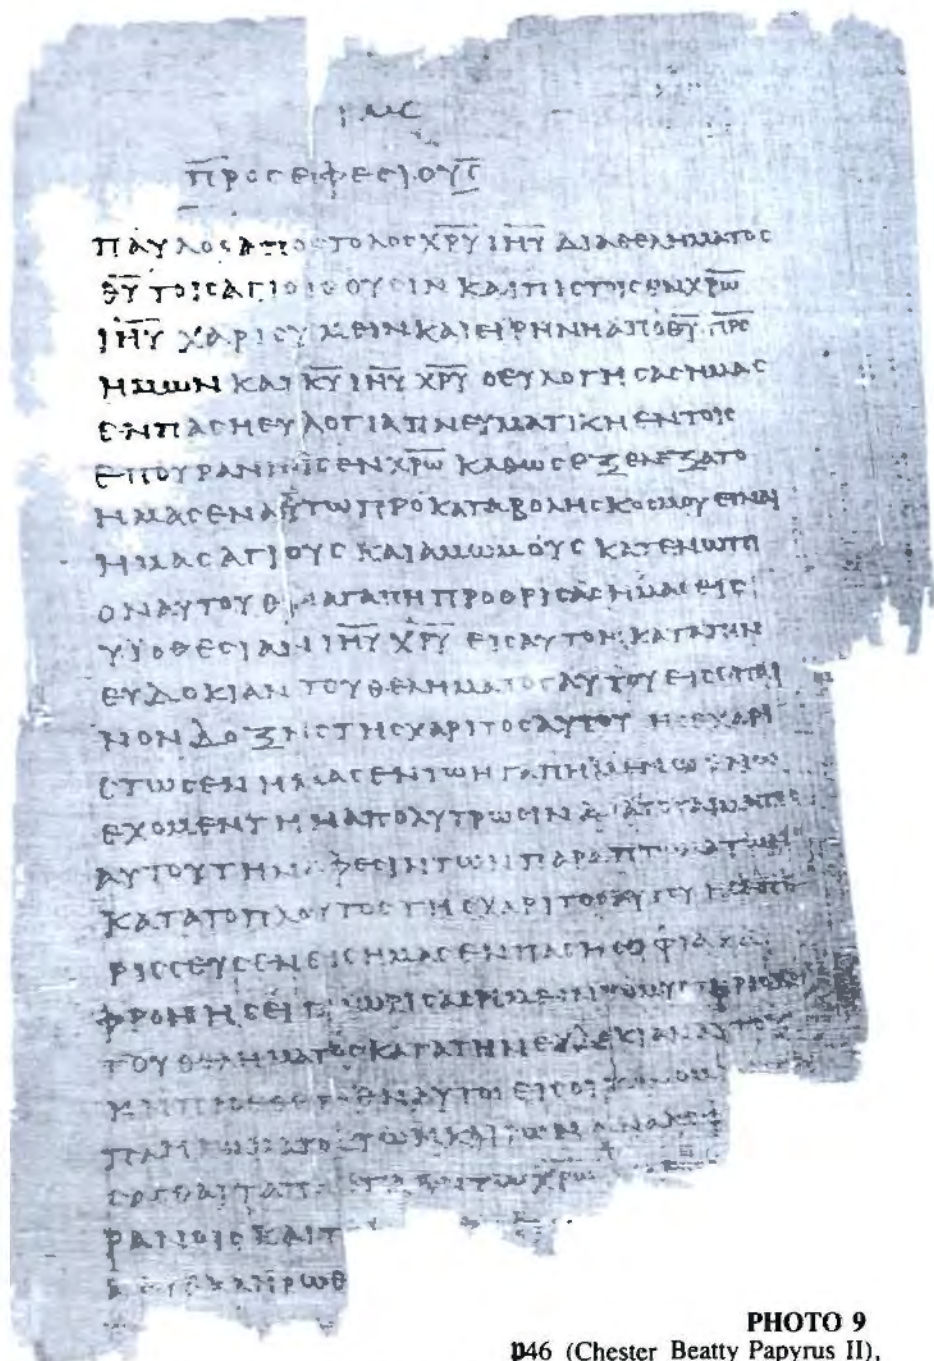 ΡΜϹ
ΠΡΟϹ ΕΦΕϹΙΟΥϹ
ΠΑΥΛΟϹ ΑΠΟϹΤΟΛΟϹ ΧΡΥ ΙΗΥ ΔΙΑ ΘΕΛΗΜΑΤΟϹ
ΘΥ ΤΟΙϹ ΑΓΙΟΙϹ ΟΥϹΙΝ ΚΑΙ ΠΙϹΤΟΙϹ ΕΝ ΧΡΩ
ΙΗΥ ΧΑΡΙϹ ΥΜΕΙΝ ΚΑΙ ΕΙΡΗΝΗ ΑΠΟ ΘΥ ΠΡΟ
ΗΜΩΝ ΚΑΙ ΚΥ ΙΗΥ ΧΡΥ Ο ΕΥΛΟΓΗϹΑϹ ΗΜΑϹ
ΕΝ ΠΑϹΗ ΕΥΛΟΓΙΑ ΠΝΕΥΜΑΤΙΚΗ ΕΝ ΤΟΙϹ
ΕΠΟΥΡΑΝΙΟΙϹ ΕΝ ΧΡΩ ΚΑΘΩϹ ΕΞΕΛΕΞΑΤΟ
ΗΜΑϹ ΕΝ ΑΥΤΩ ΠΡΟ ΚΑΤΑΒΟΛΗϹ ΚΟϹΜΟΥ ΕΙΝΑΙ
ΗΜΑϹ ΑΓΙΟΥϹ ΚΑΙ ΑΜΩΜΟΥϹ ΚΑΤΕΝΩΠΙ
ΟΝ ΑΥΤΟΥ ΕΝ ΑΓΑΠΗ ΠΡΟΟΡΙϹΑϹ ΗΜΑϹ ΕΙϹ
ΥΙΟΘΕϹΙΑΝ ΙΗΥ ΧΡΥ ΕΙϹ ΑΥΤΟΝ ΚΑΤΑ ΤΗΝ
ΕΥΔΟΚΙΑΝ ΤΟΥ ΘΕΛΗΜΑΤΟϹ ΑΥΤΟΥ ΕΙϹ ΕΠΑΙ
ΝΟΝ ΔΟΞΗϹ ΤΗϹ ΧΑΡΙΤΟϹ ΑΥΤΟΥ ΗϹ ΕΧΑΡΙ
ΤΩϹΕΝ ΗΜΑϹ ΕΝ ΤΩ ΗΓΑΠΗΜΕΝΩ ΕΝ Ω
ΕΧΟΜΕΝ ΤΗΝ ΑΠΟΛΥΤΡΩϹΙΝ ΔΙΑ ΤΟΥ ΑΙΜΑΤΟϹ
ΑΥΤΟΥ ΤΗΝ ΑΦΕϹΙΝ ΤΩΝ ΠΑΡΑΠΤΩΜΑΤΩΝ
ΚΑΤΑ ΤΟ ΠΛΟΥΤΟϹ ΤΗϹ ΧΑΡΙΤΟϹ ΑΥΤΟΥ ΗϹ ΕΠΕ
ΡΙϹϹΕΥϹΕΝ ΕΙϹ ΗΜΑϹ ΕΝ ΠΑϹΗ ϹΟΦΙΑ ΚΑΙ
ΦΡΟΝΗϹΕΙ
ΤΟΥ ΘΕΛΗΜΑΤΟϹ ΚΑΤΑ ΤΗΝ ΕΥΔΟΚΙΑΝ ΑΥΤΟΥ
ΤΩΝ ΚΑΙΡΩΝ
ΕΝ ΤΩ ΧΡΩ
ΡΑΝΟΙϹ ΚΑΙ Τ
PHOTO 9
𝔭46 (Chester Beatty Papyrus II),